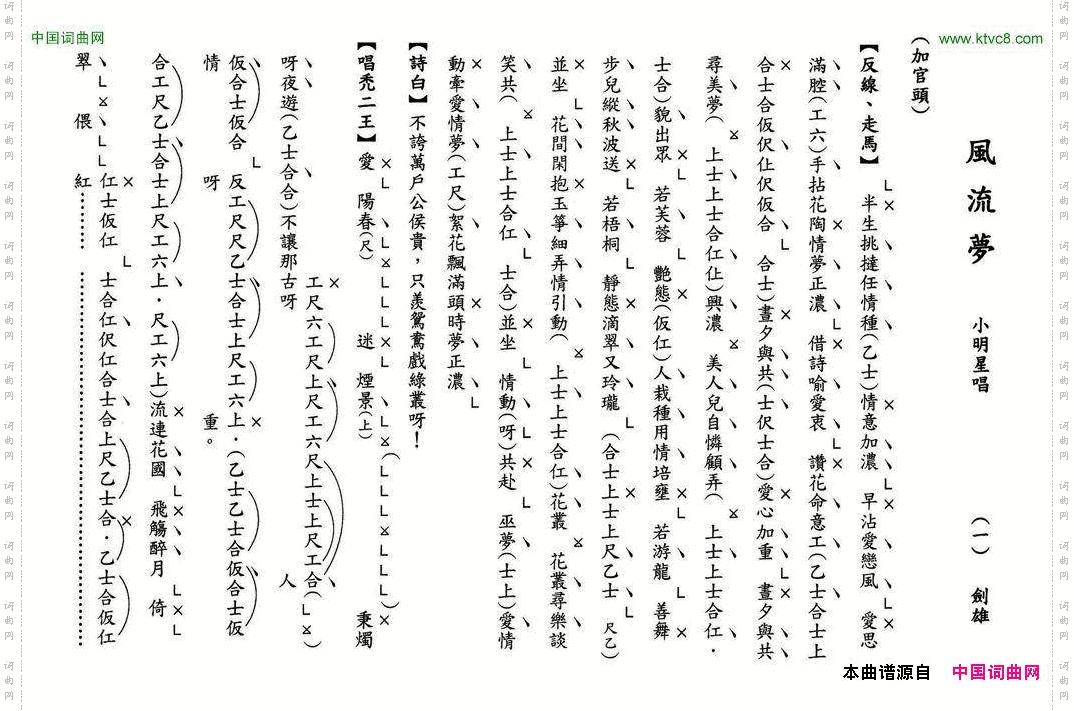 中国词曲网
www.ktvc8.com
風流夢 小明星唱 (一) 劍雄
(加官頭)
【反線、走馬】 半生挑撻任情種(乙士)情意加濃 早沾愛戀風 愛思
滿腔(工六)手拈花陶情夢正濃 借詩喻愛衷 讚花命意工(乙士合士上
合士合仮伬仩伬仮合 合士)晝夕與共(士伬士合)愛心加重 晝夕與共
尋美夢( 上士上士合仜仩)興濃 美人兒自憐顧弄( 上士上士合仁.
士合)貌出眾 若芙蓉 艷態(仮仜)人栽種用情培壅 若游龍 善舞
步兒縱秋波送 若梧桐 靜態滴翠又玲瓏 (合士上士上尺乙士 尺乙)
並坐 花間閑抱玉箏細弄情引動( 上士上士合仜)花叢 花叢尋樂談
笑共( 上士上士合仜 士合)並坐 情動(呀)共赴 巫夢(士上)愛情
動牽愛情夢(工尺)絮花飄滿頭時夢正濃
【詩白】不誇萬戶公侯貴，只羨鴛鴦戲綠叢呀！
【唱禿二王】愛 陽春(尺) 迷 煙景(上) 秉燭
呀夜遊(乙士合合)不讓那古呀 工尺六工尺上尺工六尺上士上尺工合( 人
仮合士仮合 反工尺尺乙士合士上尺工六上.(乙士乙士合仮合士仮
情 呀 重。
合工尺乙士合士上尺工六上.尺工六上)流連花國 飛觴醉月 倚
翠 偎 紅
仜士仮仜 士合仜伬仜合士合上尺乙士合.乙士合仮仜
本曲谱源自 中国词曲网